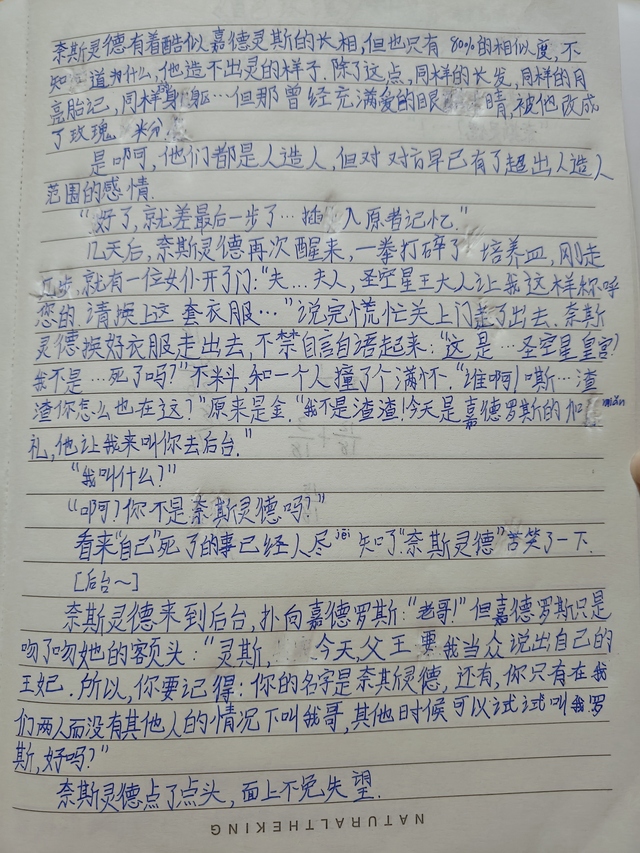 奈斯灵德有着酷似嘉德灵斯的长相,但也只有80%的相似度,不
知道为什么,他造不出灵的样子.除了这点,同样的长发,同样的月
亮胎记,同样身躯…但那曾经充满爱的眼睛,被他改成
了玫瑰粉.
是啊可,他们都是人造人,但对对方早已有了超出人造人
范围的感情.
“好了,就差最后一步了…插入原者记忆.”
几天后,奈斯灵德再次醒来,一拳打碎了培养皿,刚走
几步,就有一位女仆开了门:“夫…夫人,圣空星王大人让我这样称呼
您的,请换上这套衣服…”说完慌忙关上门走了出去.奈斯
灵德换好衣服走出去,不禁自言自语起来:“这是…圣空星皇宫?
我不是…死了吗?”不料,和一个人撞了个满怀.“谁啊!嘶…渣
渣你怎么也在这?”原来是金.“我不是渣渣!今天是嘉德罗斯的加miǎn
礼,他让我来叫你去后台.”
“我叫什么?”
“啊?你不是奈斯灵德吗?”
看来“自己”死了的事已经人尽jiē知了.“奈斯灵德”苦笑了一下.
[后台~]
奈斯灵德来到后台,扑向嘉德罗斯:“老哥!”但嘉德罗斯只是
吻了吻她的额头:“灵斯,今天,父王要我当众说出自己的
王妃.所以,你要记得:你的名字是奈斯灵德,还有,你只有在我
们两人而没有其他人的情况下叫我哥,其他时候可以试试叫我罗
斯,好吗?”
奈斯灵德点了点头,面上不免失望.
NATURALTHEKING